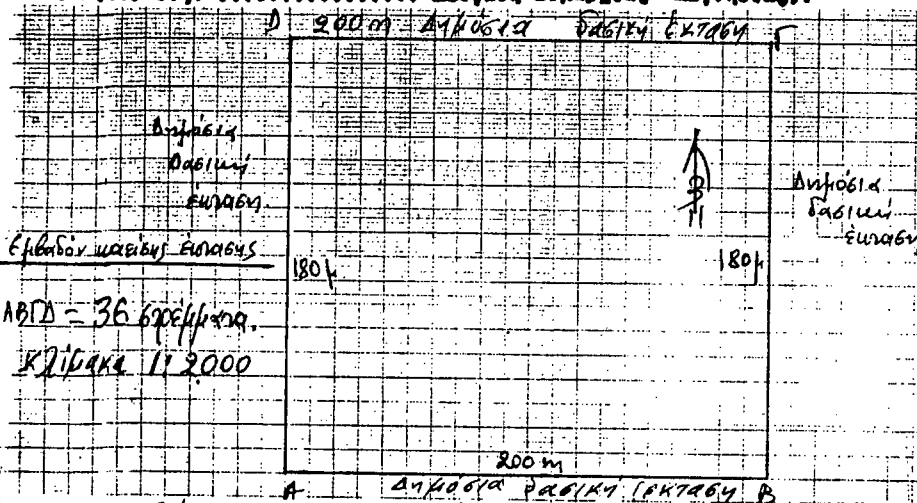 Δ 200m Δημόσια δασική έκταση Γ
Δημόσια
δασική
έκταση.
Δημόσια
δασική
έκταση
Εμβαδόν καείσης έκτασης
180μ
180μ
ΑΒΓΔ = 36 στρέμματα.
Κλίμακα 1:2000
200m
Α Δημόσια δασική έκταση Β